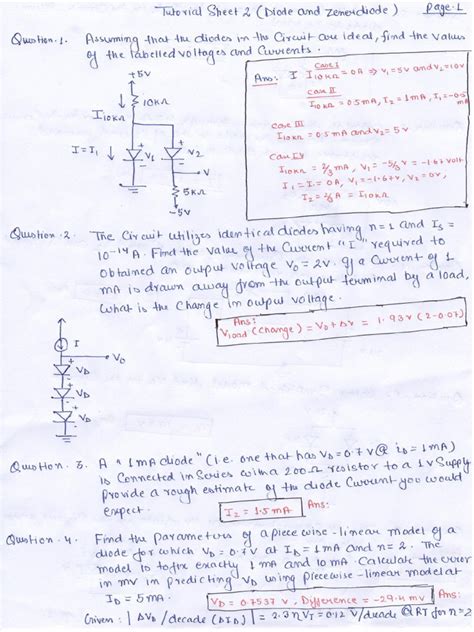 Tutorial Sheet 2 (Diode and Zenerdiode) Page-1
Question.1. Assuming that the diodes in the Circuit are ideal, find the values
of the labelled voltages and Currents.
+5V
10kΩ
I10kΩ
I=I1
V1
V2
V
5kΩ
-5V
Case I
Ans: I I10kΩ = 0A ⇒ V1=5V and V2=10V
Case II
I10kΩ = 0.5mA, I2=1mA, I1=-0.5
mA
Case III
I10kΩ = 0.5mA and V2= 5V
Case IV
I10kΩ = 2/3 mA, V1 = -5/3 V = -1.67 Volt
I1=I= 0A, V1=-1.67V, V2=0V,
I2 = 2/3 A = I10kΩ
Question.2. The Circuit utilizes identical diodes having n=1 and Is =
10⁻¹⁴A. Find the value of the Current "I" required to
obtained an output voltage Vo=2V. If a Current of 1
mA is drawn away from the output terminal by a load,
what is the Change in output voltage.
Ans:
Vload (Change) = Vo+Δv = 1.93V (2-0.07)
I
Vo
VD
VD
VD
Question.3. A "1mA diode" (i.e. one that has VD=0.7V @ iD=1mA)
is Connected in Series with a 200Ω resistor to a 1V Supply
Provide a rough estimate of the diode Current you would
expect.
I2 = 1.5mA Ans:
Question.4. Find the Parameters of a piece wise-linear model of a
diode for which VD=0.7V at ID=1mA and n=2. The
model is to fix exactly 1mA and 10mA. Calculate the error
in mv in predicting VD using piecewise-linear model at
ID = 5mA.
VD = 0.7537V, Difference = -29.4mV Ans:
Given: | ΔVD /decade (DID) | = 2.3nVT = 0.12 V/decade @RT for n=2